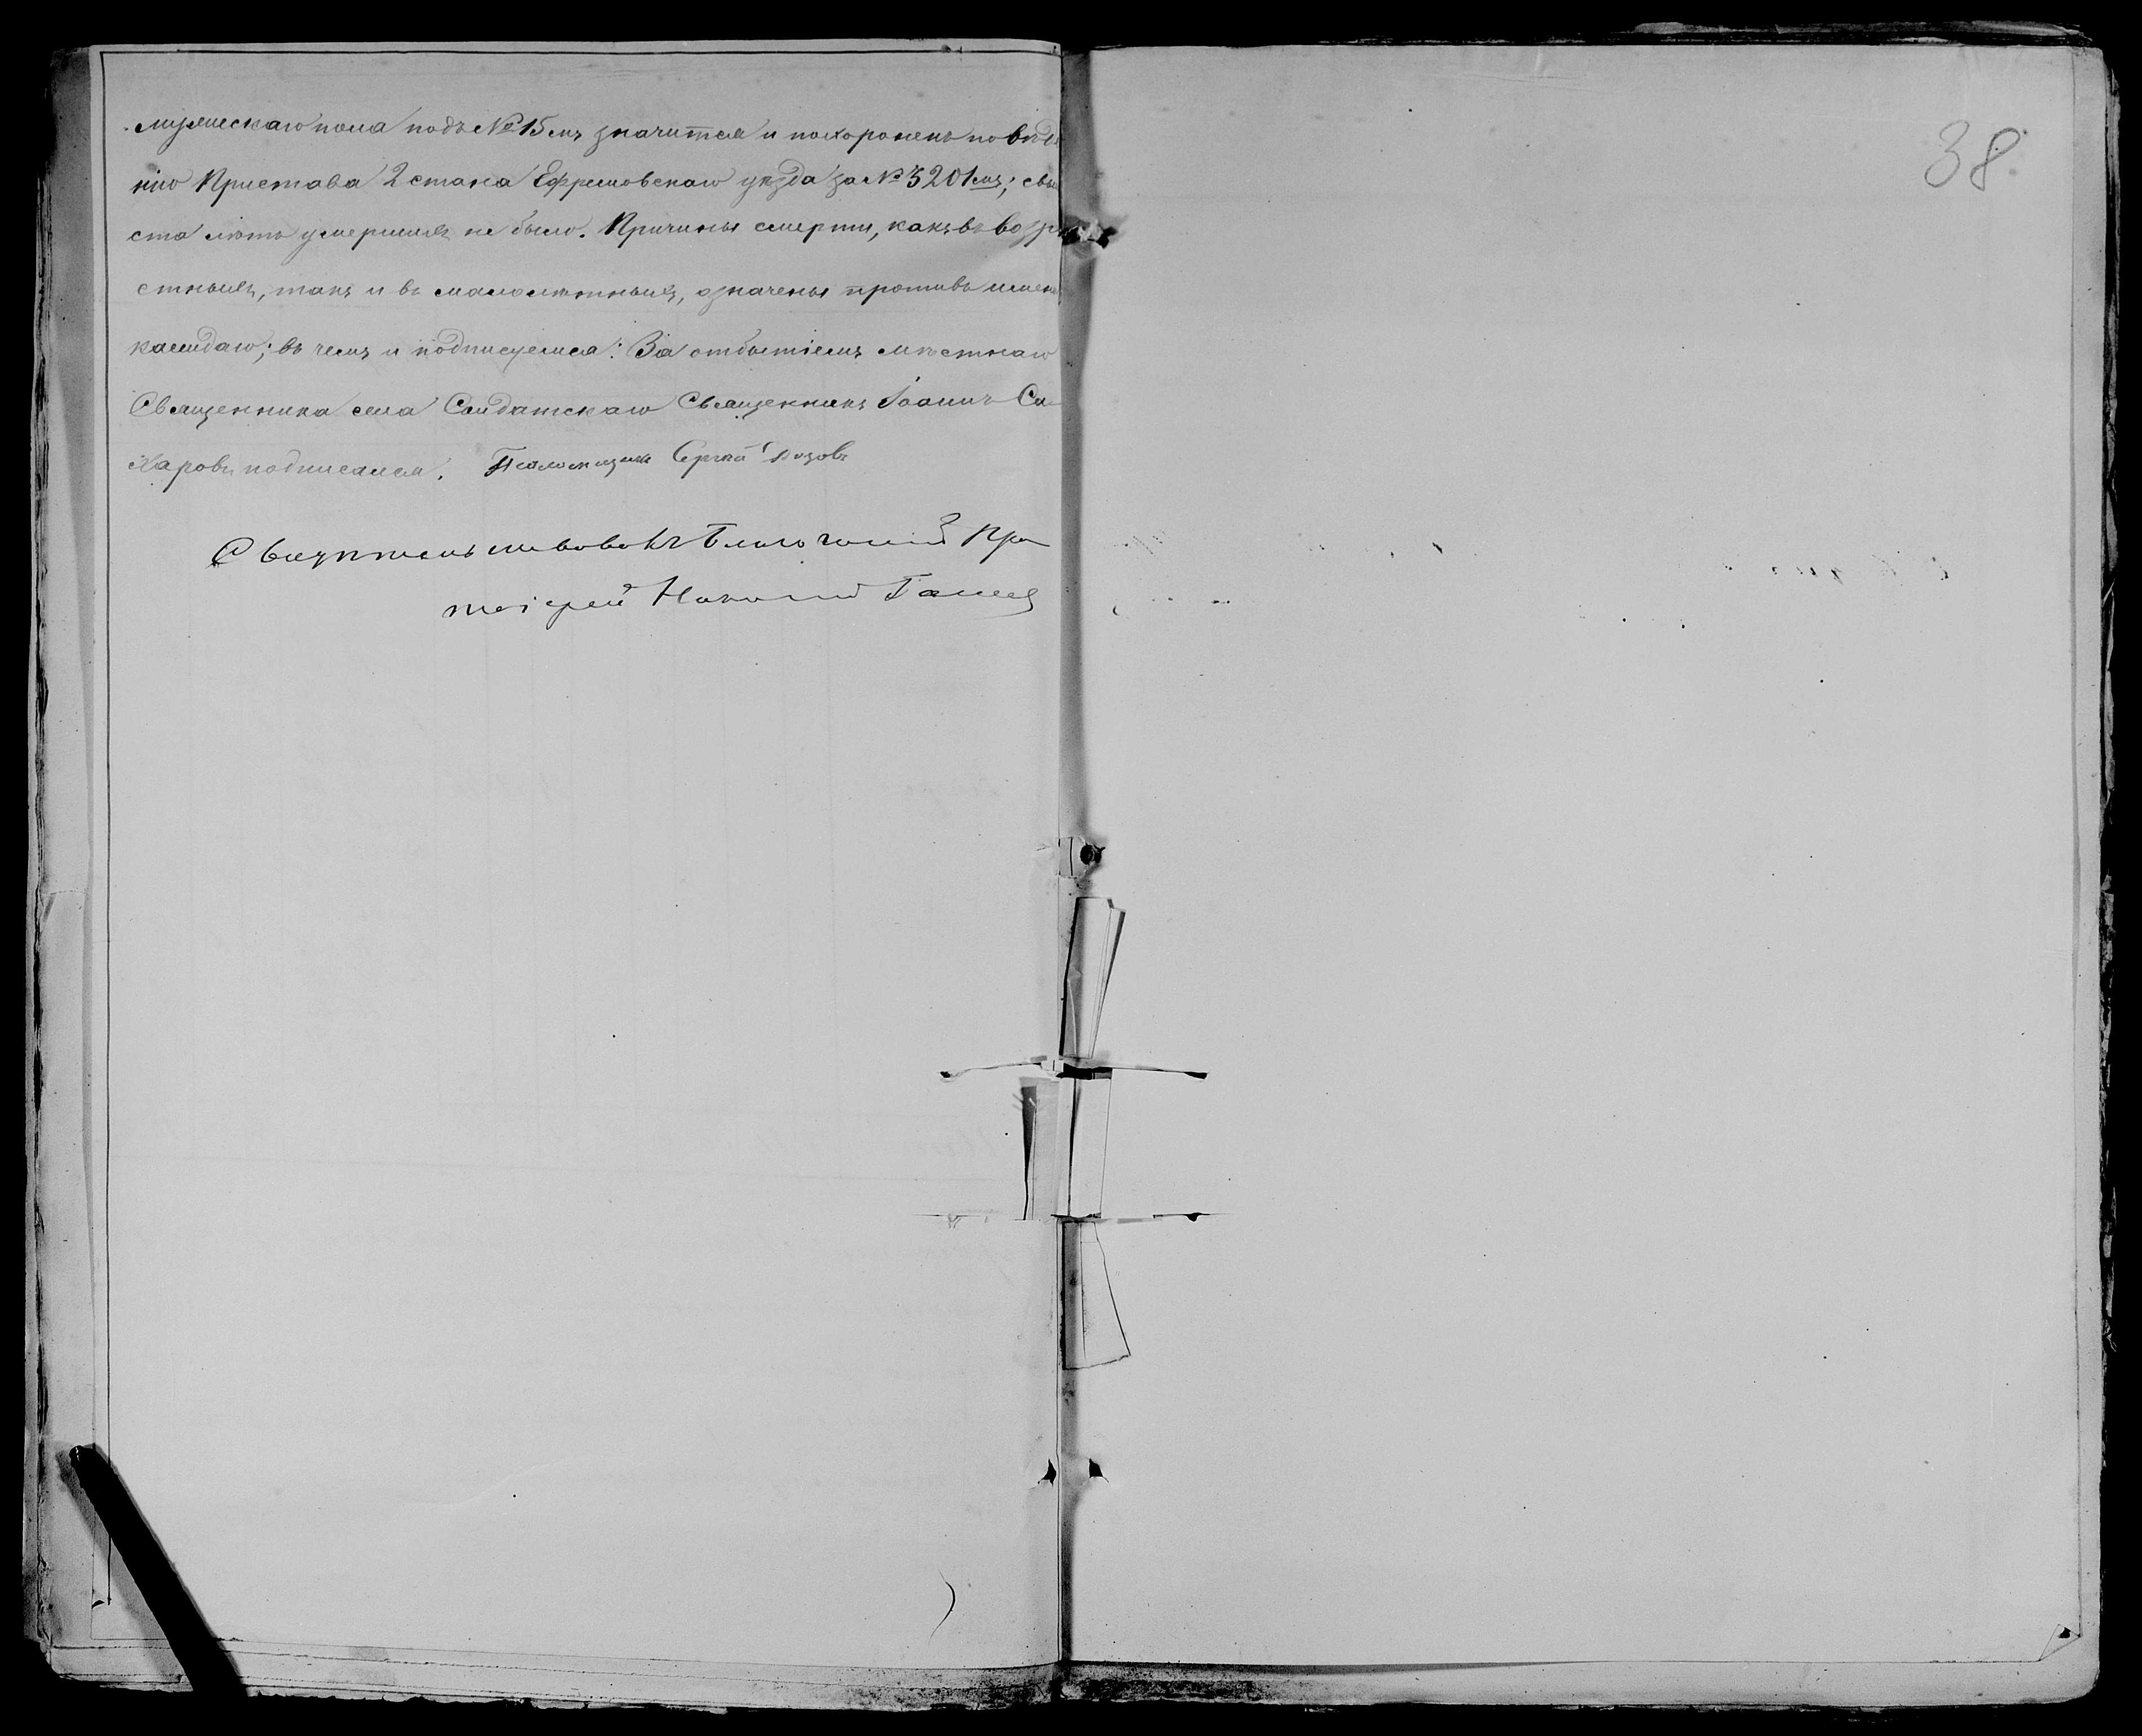 мужескаго пола подъ № 15мъ значится и похороненъ по вѣдѣ
нію Пристава 2 стана Ефремовскаго уѣзда за № 3201мъ; свы
ста лѣтъ умершихъ не было. Причины смерти, какъ въ возра
стныхъ, такъ и въ малолѣтныхъ, означены противъ имени
каждаго; въ чемъ и подписуемся: За отбытіемъ мѣстнаго
Священника села Солдатскаго Священникъ Іоаннъ Са
харовъ подписался. Псаломщикъ Сергѣй
Свидѣтельствовалъ Благочинный Про
тоіерей Николай
38